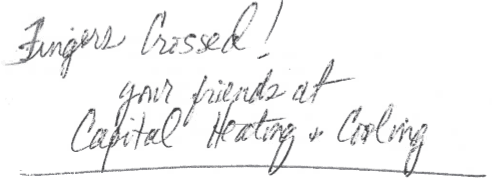 Fingers Crossed!
your friends at
Capital Heating + Cooling